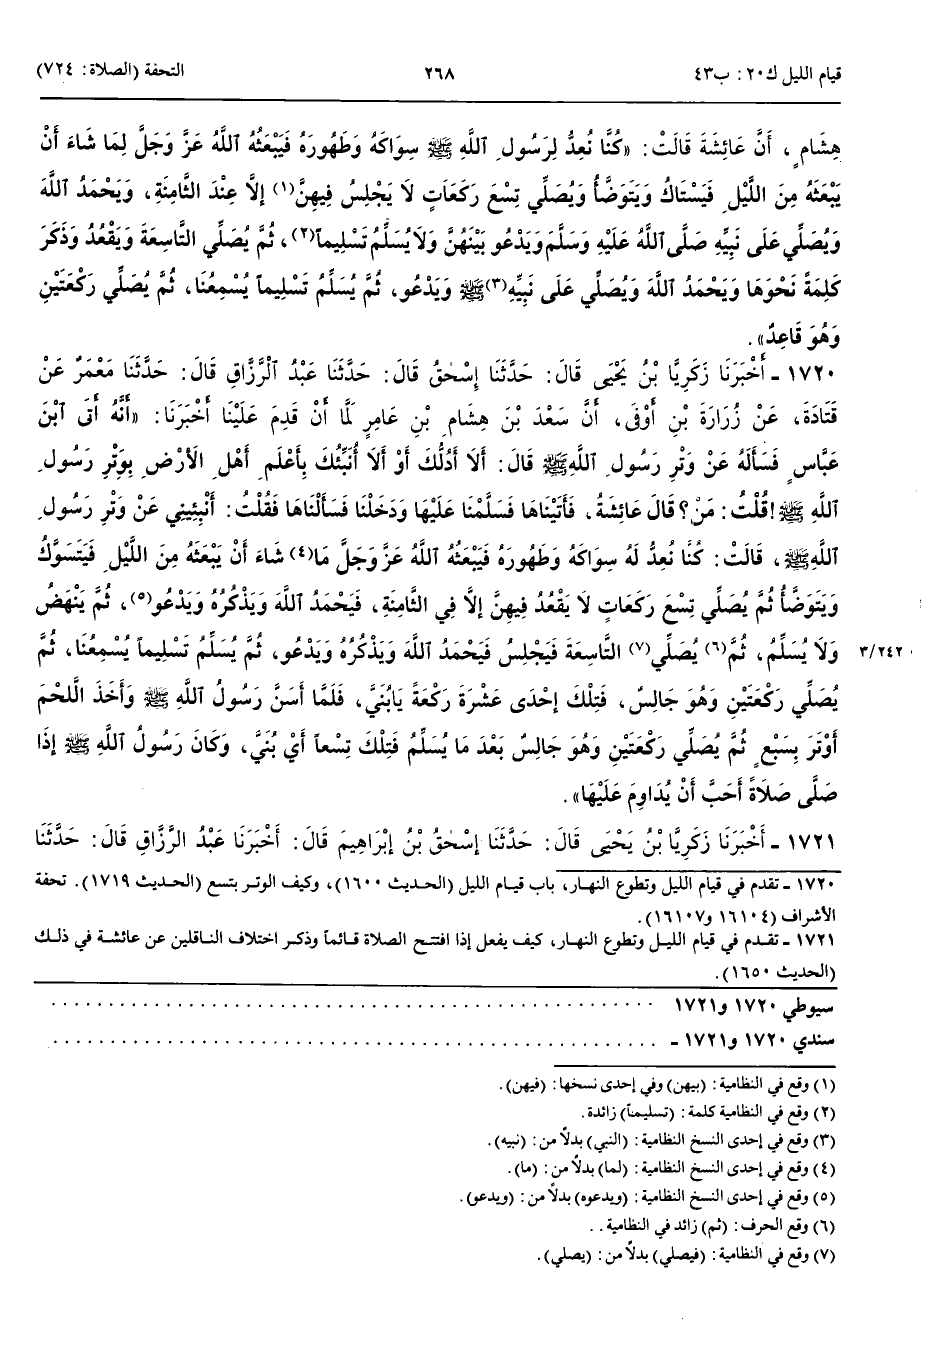 قيام الليل ك٢٠: ب٤٣
٢٦٨
التحفة (الصلاة: ٧٢٤)
هِشَامٍ، أَنَّ عَائِشَةَ قَالَتْ: «كُنَّا نُعِدُّ لِرَسُولِ اللَّهِ ﷺ سِوَاكَهُ وَطَهُورَهُ فَيَبْعَثُهُ اللَّهُ عَزَّ وَجَلَّ لِمَا شَاءَ أَنْ
يَبْعَثَهُ مِنَ اللَّيْلِ فَيَسْتَاكُ وَيَتَوَضَّأُ وَيُصَلِّي تِسْعَ رَكَعَاتٍ لَا يَجْلِسُ فِيهِنَّ(١) إِلَّا عِنْدَ الثَّامِنَةِ، وَيَحْمَدُ اللَّهَ
وَيُصَلِّي عَلَى نَبِيِّهِ صَلَّى اللَّهُ عَلَيْهِ وَسَلَّمَ وَيَدْعُو بَيْنَهُنَّ وَلَا يُسَلِّمُ تَسْلِيماً(٢)، ثُمَّ يُصَلِّي التَّاسِعَةَ وَيَقْعُدُ وَذَكَرَ
كَلِمَةً نَحْوَهَا وَيَحْمَدُ اللَّهَ وَيُصَلِّي عَلَى نَبِيِّهِ(٣) ﷺ وَيَدْعُو، ثُمَّ يُسَلِّمُ تَسْلِيماً يُسْمِعُنَا، ثُمَّ يُصَلِّي رَكْعَتَيْنِ
وَهُوَ قَاعِدٌ».
١٧٢٠ ـ أَخْبَرَنَا زَكَرِيَّا بْنُ يَحْيَى قَالَ: حَدَّثَنَا إِسْحٰقُ قَالَ: حَدَّثَنَا عَبْدُ الرَّزَّاقِ قَالَ: حَدَّثَنَا مَعْمَرٌ عَنْ
قَتَادَةَ، عَنْ زُرَارَةَ بْنِ أَوْفَى، أَنَّ سَعْدَ بْنَ هِشَامِ بْنِ عَامِرٍ لَمَّا أَنْ قَدِمَ عَلَيْنَا أَخْبَرَنَا: «أَنَّهُ أَتَى ابْنَ
عَبَّاسٍ فَسَأَلَهُ عَنْ وَتْرِ رَسُولِ اللَّهِ ﷺ قَالَ: أَلَا أَدُلُّكَ أَوْ أَلَا أُنَبِّئُكَ بِأَعْلَمِ أَهْلِ الأَرْضِ بِوَتْرِ رَسُولِ
اللَّهِ ﷺ! قُلْتُ: مَنْ؟ قَالَ عَائِشَةُ، فَأَتَيْنَاهَا فَسَلَّمْنَا عَلَيْهَا وَدَخَلْنَا فَسَأَلْنَاهَا فَقُلْتُ: أَنْبِئِينِي عَنْ وَتْرِ رَسُولِ
اللَّهِ ﷺ، قَالَتْ: كُنَّا نُعِدُّ لَهُ سِوَاكَهُ وَطَهُورَهُ فَيَبْعَثُهُ اللَّهُ عَزَّ وَجَلَّ مَا(٤) شَاءَ أَنْ يَبْعَثَهُ مِنَ اللَّيْلِ فَيَتَسَوَّكُ
وَيَتَوَضَّأُ ثُمَّ يُصَلِّي تِسْعَ رَكَعَاتٍ لَا يَقْعُدُ فِيهِنَّ إِلَّا فِي الثَّامِنَةِ، فَيَحْمَدُ اللَّهَ وَيَذْكُرُهُ وَيَدْعُو(٥)، ثُمَّ يَنْهَضُ
وَلَا يُسَلِّمُ، ثُمَّ(٦) يُصَلِّي(٧) التَّاسِعَةَ فَيَجْلِسُ فَيَحْمَدُ اللَّهَ وَيَذْكُرُهُ وَيَدْعُو، ثُمَّ يُسَلِّمُ تَسْلِيماً يُسْمِعُنَا، ثُمَّ
٣/٢٤٢
يُصَلِّي رَكْعَتَيْنِ وَهُوَ جَالِسٌ، فَتِلْكَ إِحْدَى عَشْرَةَ رَكْعَةً يَابُنَيَّ، فَلَمَّا أَسَنَّ رَسُولُ اللَّهِ ﷺ وَأَخَذَ اللَّحْمَ
أَوْتَرَ بِسَبْعٍ ثُمَّ يُصَلِّي رَكْعَتَيْنِ وَهُوَ جَالِسٌ بَعْدَ مَا يُسَلِّمُ فَتِلْكَ تِسْعاً أَيْ بُنَيَّ، وَكَانَ رَسُولُ اللَّهِ ﷺ إِذَا
صَلَّى صَلَاةً أَحَبَّ أَنْ يُدَاوِمَ عَلَيْهَا».
١٧٢١ ـ أَخْبَرَنَا زَكَرِيَّا بْنُ يَحْيَى قَالَ: حَدَّثَنَا إِسْحٰقُ بْنُ إِبْرَاهِيمَ قَالَ: أَخْبَرَنَا عَبْدُ الرَّزَّاقِ قَالَ: حَدَّثَنَا
١٧٢٠ ـ تقدم في قيام الليل وتطوع النهار، باب قيام الليل (الحديث ١٦٠٠)، وكيف الوتر بتسع (الحديث ١٧١٩). تحفة
الأشراف (١٦١٠٤ و١٦١٠٧).
١٧٢١ ـ تقدم في قيام الليل وتطوع النهار، كيف يفعل إذا افتتح الصلاة قائماً وذكر اختلاف الناقلين عن عائشة في ذلك
(الحديث ١٦٥٠).
سيوطي ١٧٢٠ و١٧٢١ ........................................
سندي ١٧٢٠ و١٧٢١ ـ ........................................
(١) وقع في النظامية: (بيهن) وفي إحدى نسخها: (فيهن).
(٢) وقع في النظامية كلمة: (تسليماً) زائدة.
(٣) وقع في إحدى النسخ النظامية: (النبي) بدلاً من: (نبيه).
(٤) وقع في إحدى النسخ النظامية: (لما) بدلاً من: (ما).
(٥) وقع في إحدى النسخ النظامية: (ويدعوه) بدلاً من: (ويدعو).
(٦) وقع الحرف: (ثم) زائد في النظامية..
(٧) وقع في النظامية: (فيصلي) بدلاً من: (يصلي).